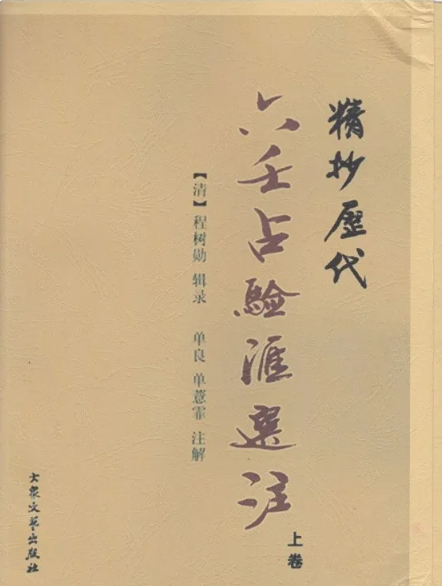 精抄歷代
六壬占驗滙選注
上卷
【清】程树勋 辑录 单良 单薏霏 注解
大眾文藝出版社